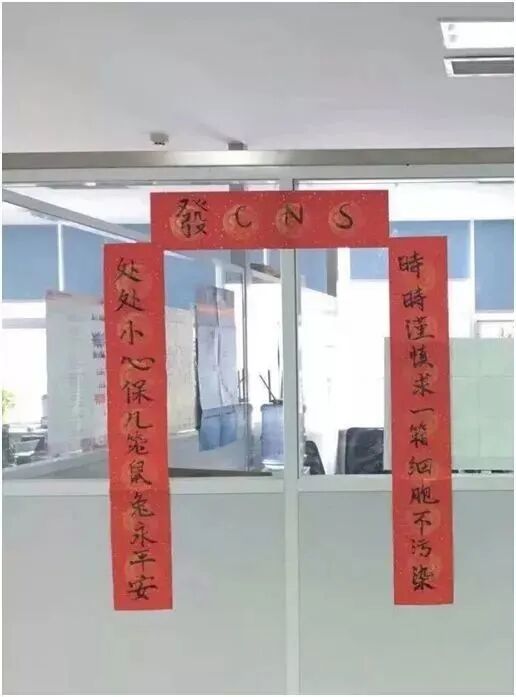 發CNS
時時谨慎求一箱细胞不污染
处处小心保几笼鼠兔永平安